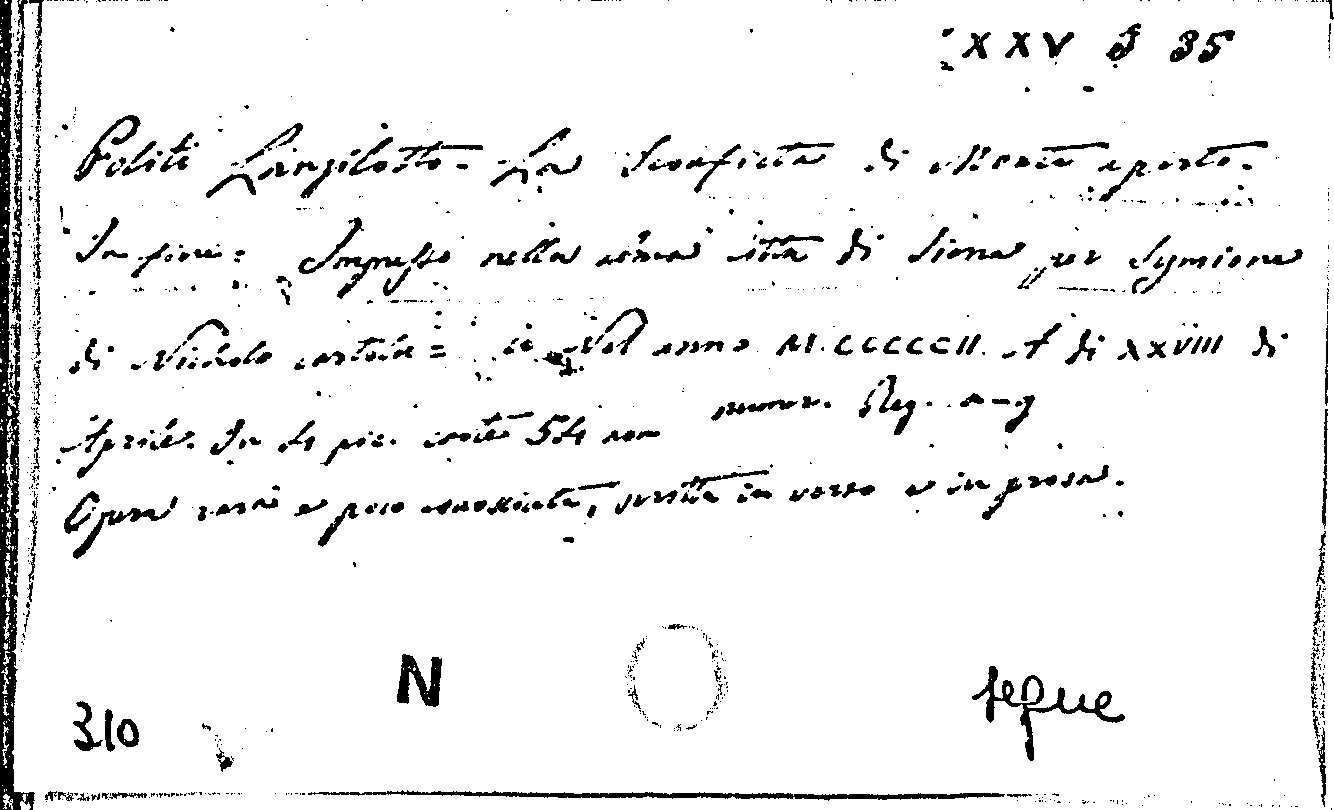 XXV J 35
Politi Lanzilotto - La Sconficta di Monte aperto.
In fine: Impresso nella alma citta di Siena per Symione
di Nicholo cartola = io Nel anno M.CCCCCII. A di XXVIII di
Aprile. In 4 pic. carte 54 non numer. Reg. a-g
Opera rara e poco conosciuta, scritta in verso e in prosa.
N
segue
310